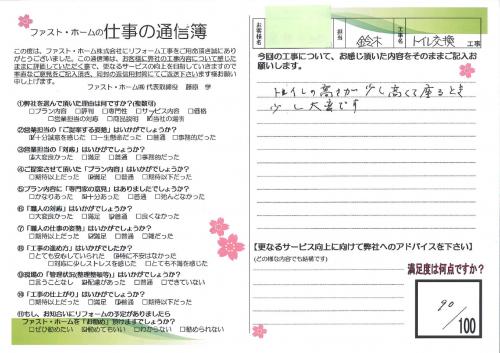 ファスト・ホームの仕事の通信簿
この度は、ファスト・ホーム株式会社にリフォーム工事をご用命頂き誠にあり
がとうございました。この通信簿は、お客様に弊社の工事内容について感じた
ままに評価していただく事で、更なるサービスの向上を目指していきますので
率直なご意見をご記入頂き、同封の返信用封筒にてご返送下さいます様お願い
申し上げます。
ファスト・ホーム㈱ 代表取締役 藤原 学
①弊社を選んで頂いた理由は何ですか？(複数可)
□プラン内容 □評判 □専門性 □サービス内容 □価格
□営業担当の対応 □商品説明 ☑当社の場所
②営業担当の「ご提案する姿勢」はいかがでしょうか？
☑十分誠意を感じた □一生懸命だった □普通 □事務的だった
③営業担当の「対応」はいかがでしょうか？
☑大変良かった □満足 □普通 □事務的だった
④ご提案させて頂いた「プラン内容」はいかがでしょうか？
□期待以上だった ☑満足 □普通 □不満
⑤プラン内容に「専門家の意見」はありましたでしょうか？
□かなりあった ☑十分あった □普通 □殆んどなかった
⑥「職人の対応」はいかがでしょうか？
□大変良かった □満足 ☑普通 □良くなかった
⑦「職人の仕事の姿勢」はいかがでしょうか？
□期待以上だった ☑満足 □普通 □雑だった
⑧「工事の進め方」はいかがでしたか？
□とても安心していられた ☑特に不安はなかった
□対応に少しストレスを感じた □とても不満を感じた
⑨現場の「管理状況(整理整頓等)」はいかがでしょうか？
□言うことなし ☑配慮があった □普通 □できていない
⑩「工事の仕上がり」はいかがでしょうか？
□期待以上だった □満足 ☑普通 □期待以下だった
⑪もし、お知合いにリフォームの予定がありましたら
ファスト・ホームを「お勧め」頂けますでしょうか？
□ぜひ勧めたい ☑勧めてもいい □わからない □勧められない
お客様名
担当
鈴木
工事名
トイレ交換
工事
今回の工事について、お感じ頂いた内容をそのままご記入お
願いします。
トイレの高さが少し高くて座るとき
少し大変です
【更なるサービス向上に向けて弊社へのアドバイスを下さい】
(どの様な内容でも結構です)
満足度は何点ですか？
90
/100